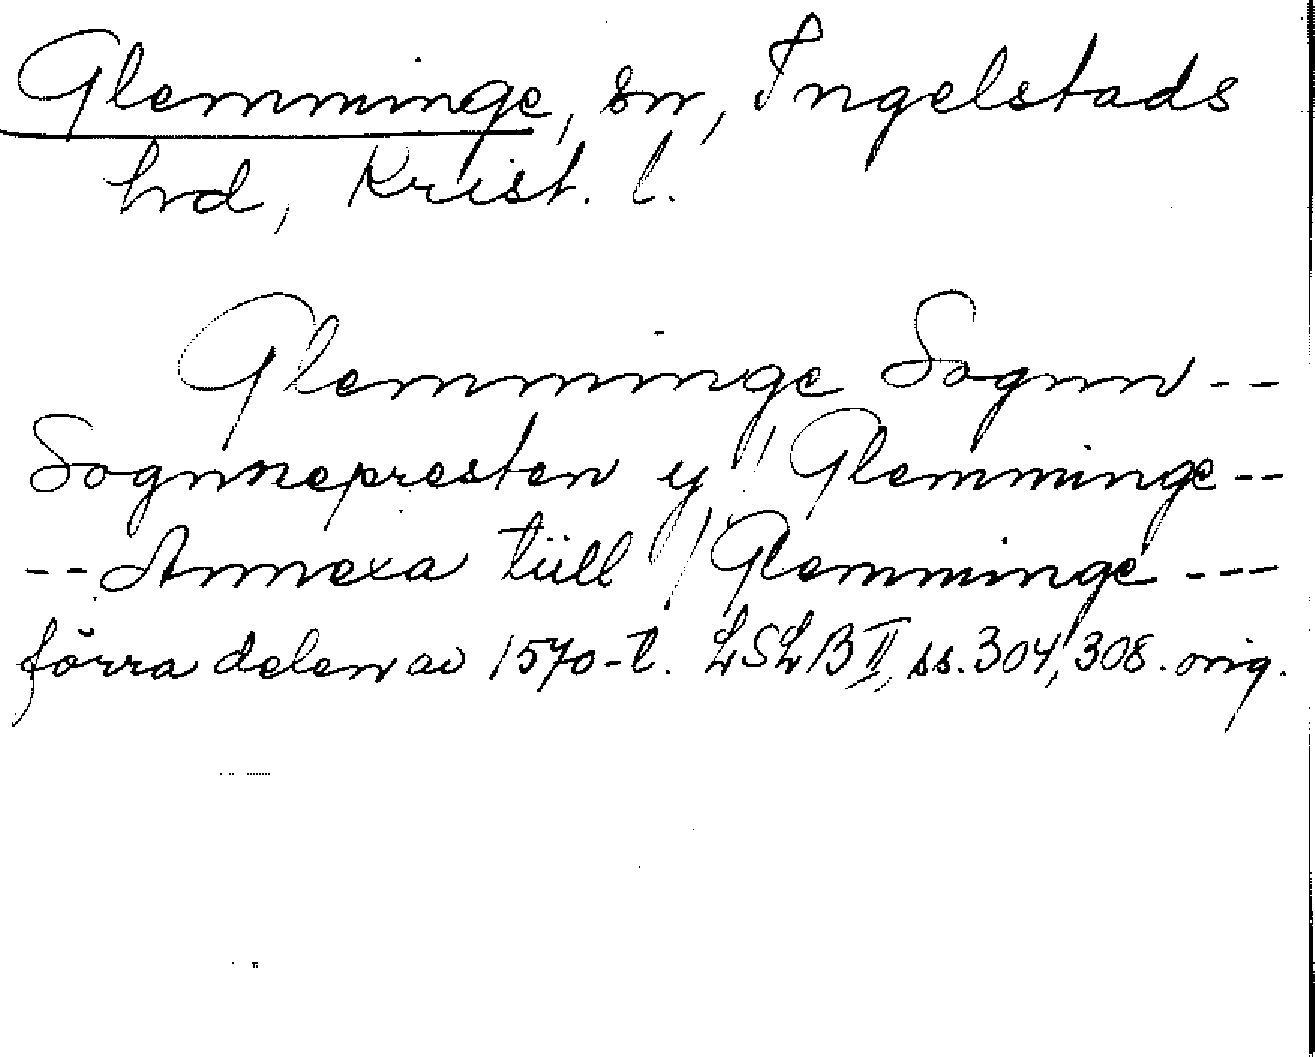 Glemminge, sn, Ingelstads
hd, Krist. l.
Glemminge Sognn--
Sognnepresten y Glemminge--
--Annexa tüll Glemminge---
förra delen av 1570-t. LSLB II, ss. 304, 308. orig.